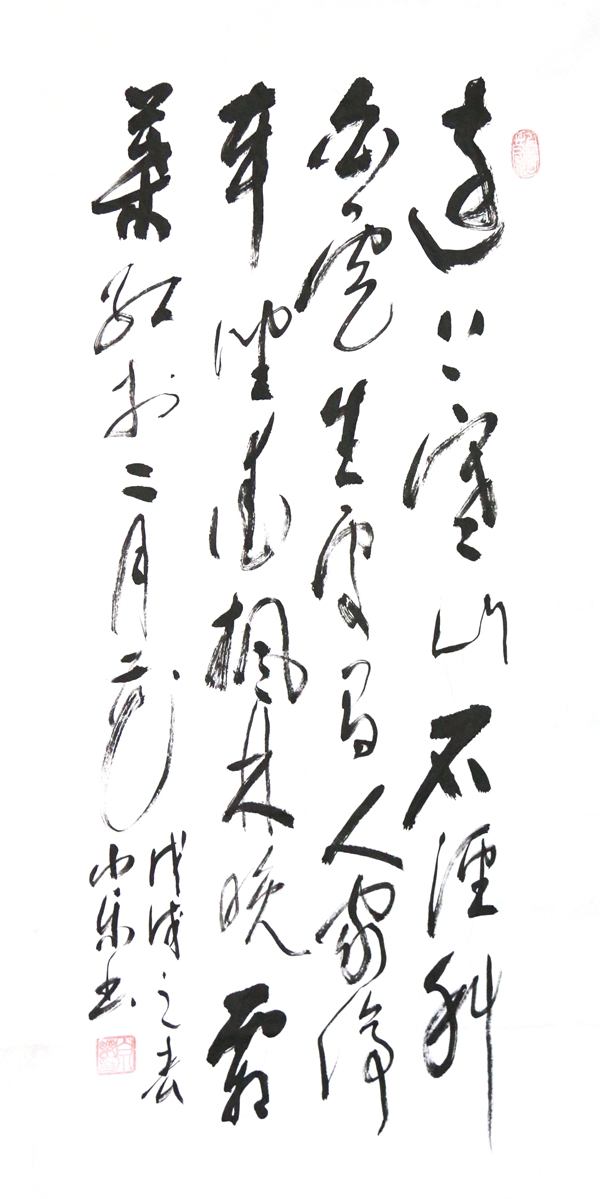 遠上寒山石徑斜
白雲生處有人家停
車坐愛楓林晚霜
葉紅於二月花
戊戌之春
小乐书